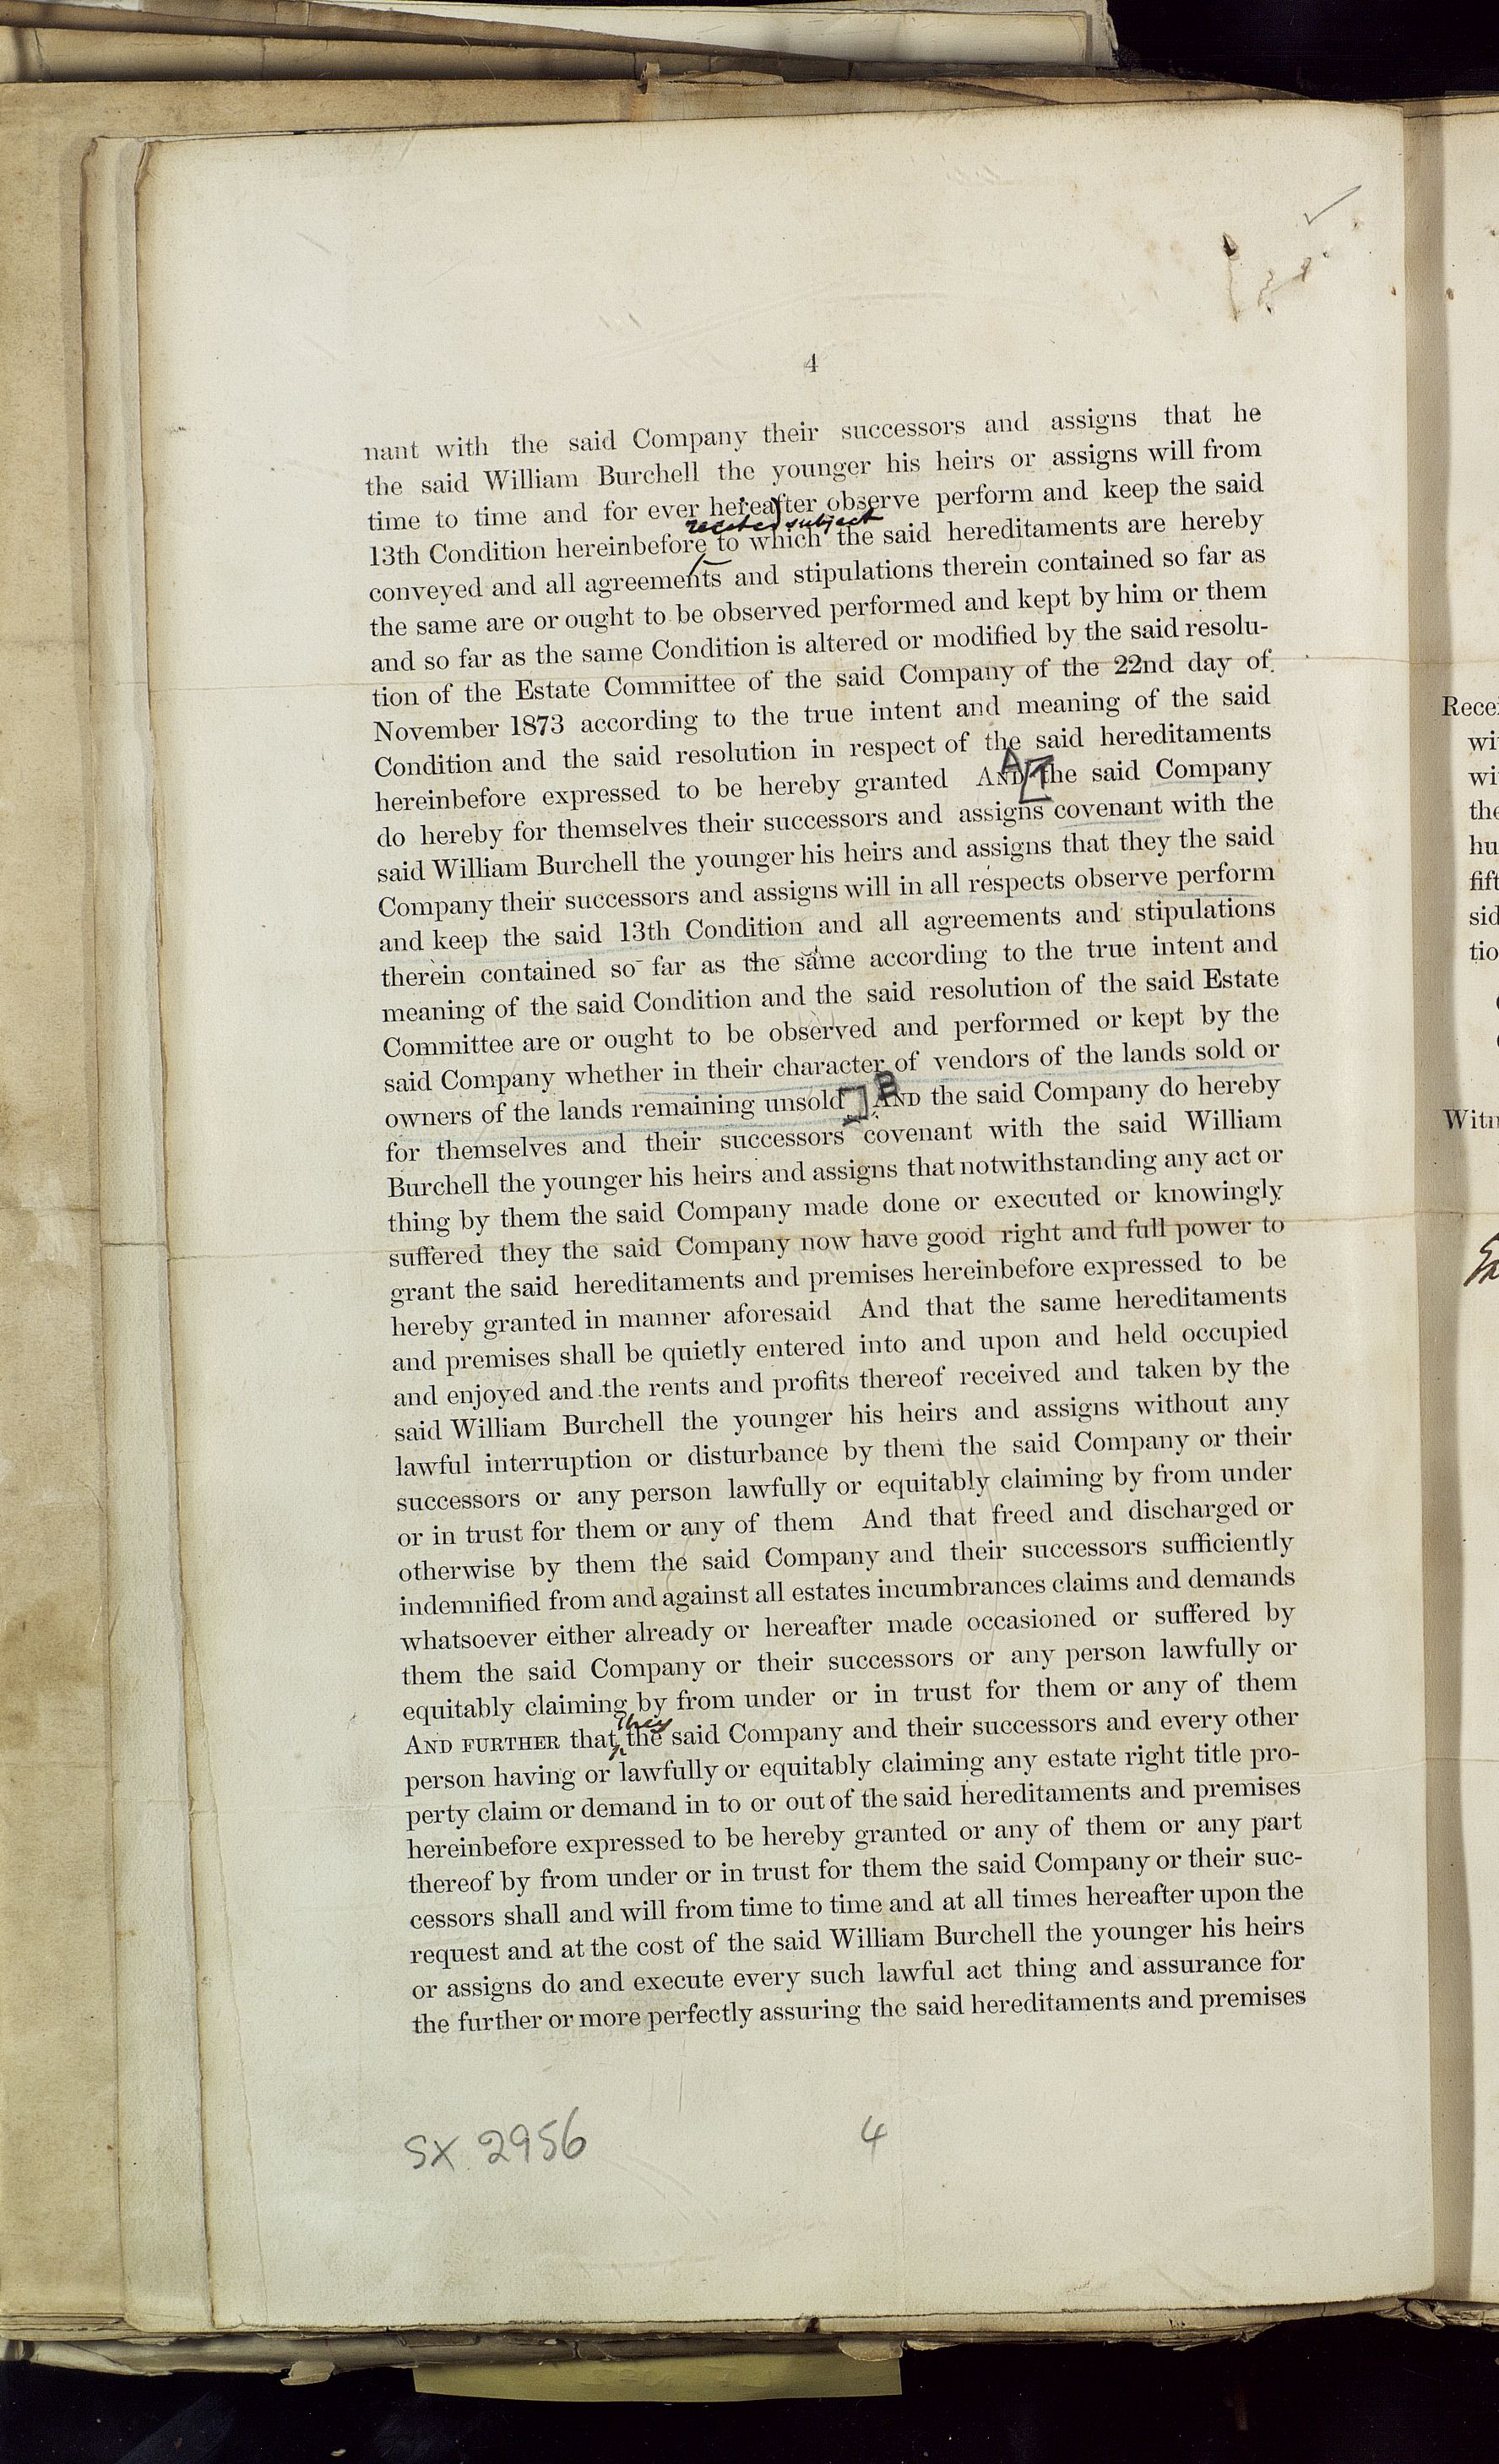 4
nant with the said Company their successors and assigns that he
the said William Burchell the younger his heirs or assigns will from
time to time and for ever hereafter observe perform and keep the said
recited subject
13th Condition hereinbefore to which the said hereditaments are hereby
conveyed and all agreements and stipulations therein contained so far as
the same are or ought to be observed performed and kept by him or them
and so far as the same Condition is altered or modified by the said resolu-
tion of the Estate Committee of the said Company of the 22nd day of
November 1873 according to the true intent and meaning of the said
Condition and the said resolution in respect of the said hereditaments
A
hereinbefore expressed to be hereby granted AND [the said Company
do hereby for themselves their successors and assigns covenant with the
said William Burchell the younger his heirs and assigns that they the said
Company their successors and assigns will in all respects observe perform
and keep the said 13th Condition and all agreements and stipulations
therein contained so far as the same according to the true intent and
meaning of the said Condition and the said resolution of the said Estate
Committee are or ought to be observed and performed or kept by the
said Company whether in their character of vendors of the lands sold or
B
owners of the lands remaining unsold] AND the said Company do hereby
for themselves and their successors covenant with the said William
Burchell the younger his heirs and assigns that notwithstanding any act or
thing by them the said Company made done or executed or knowingly
suffered they the said Company now have good right and full power to
grant the said hereditaments and premises hereinbefore expressed to be
hereby granted in manner aforesaid And that the same hereditaments
and premises shall be quietly entered into and upon and held occupied
and enjoyed and the rents and profits thereof received and taken by the
said William Burchell the younger his heirs and assigns without any
lawful interruption or disturbance by them the said Company or their
successors or any person lawfully or equitably claiming by from under
or in trust for them or any of them And that freed and discharged or
otherwise by them the said Company and their successors sufficiently
indemnified from and against all estates incumbrances claims and demands
whatsoever either already or hereafter made occasioned or suffered by
them the said Company or their successors or any person lawfully or
equitably claiming by from under or in trust for them or any of them
they
AND FURTHER that the said Company and their successors and every other
person having or lawfully or equitably claiming any estate right title pro-
perty claim or demand in to or out of the said hereditaments and premises
hereinbefore expressed to be hereby granted or any of them or any part
thereof by from under or in trust for them the said Company or their suc-
cessors shall and will from time to time and at all times hereafter upon the
request and at the cost of the said William Burchell the younger his heirs
or assigns do and execute every such lawful act thing and assurance for
the further or more perfectly assuring the said hereditaments and premises
SX 2956 4
Rece
wi
wi
the
hu
fift
sid
tio
Witn